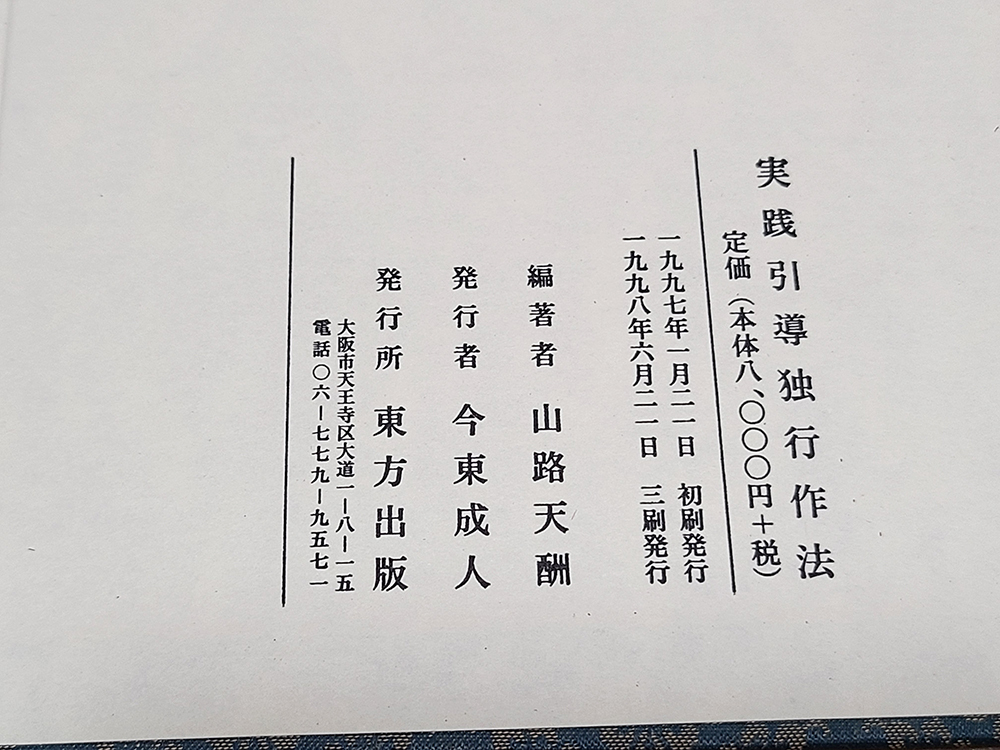 実践引導独行作法
定価（本体八、〇〇〇円＋税）
一九九七年一月二一日　初刷発行
一九九八年六月二一日　三刷発行
編著者　山路天酬
発行者　今東成人
発行所　東方出版
大阪市天王寺区大道一－八－一五
電話〇六－七七九－九五七一